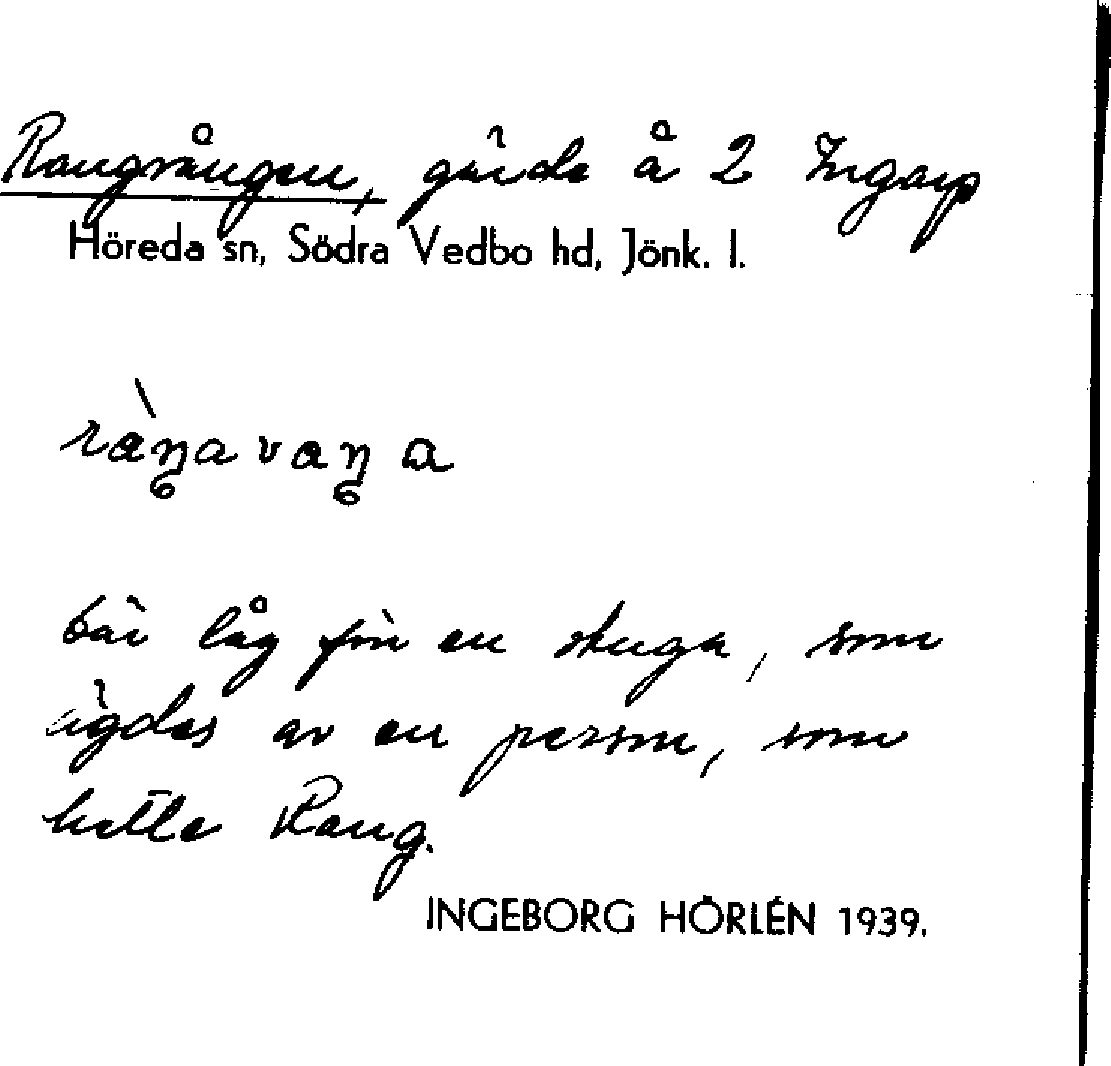 Rangvången, gärde å 2 Ingarp
Höreda sn, Södra Vedbo hd, Jönk. l.
ràŋavaŋa
Där låg förr en stuga, som
ägdes av en person, som
hette Rang.
INGEBORG HÖRLÉN 1939.